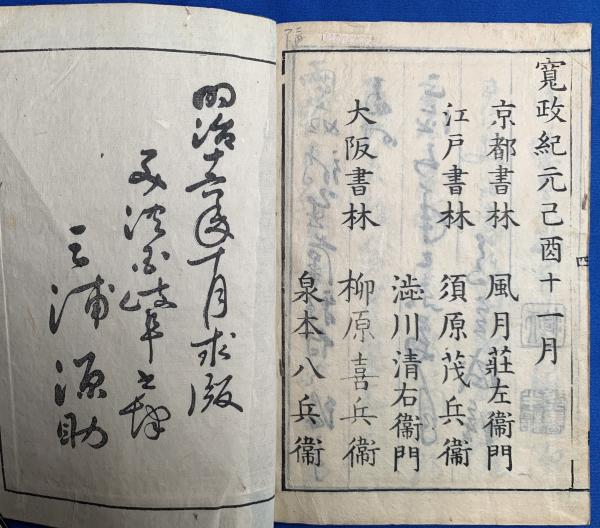 寛政紀元己酉十一月
京都書林 風月荘左衞門
江戸書林 須原茂兵衞
澁川清右衞門
大阪書林 柳原喜兵衞
泉本八兵衞
四
明治十六年十月求版
三浦源助